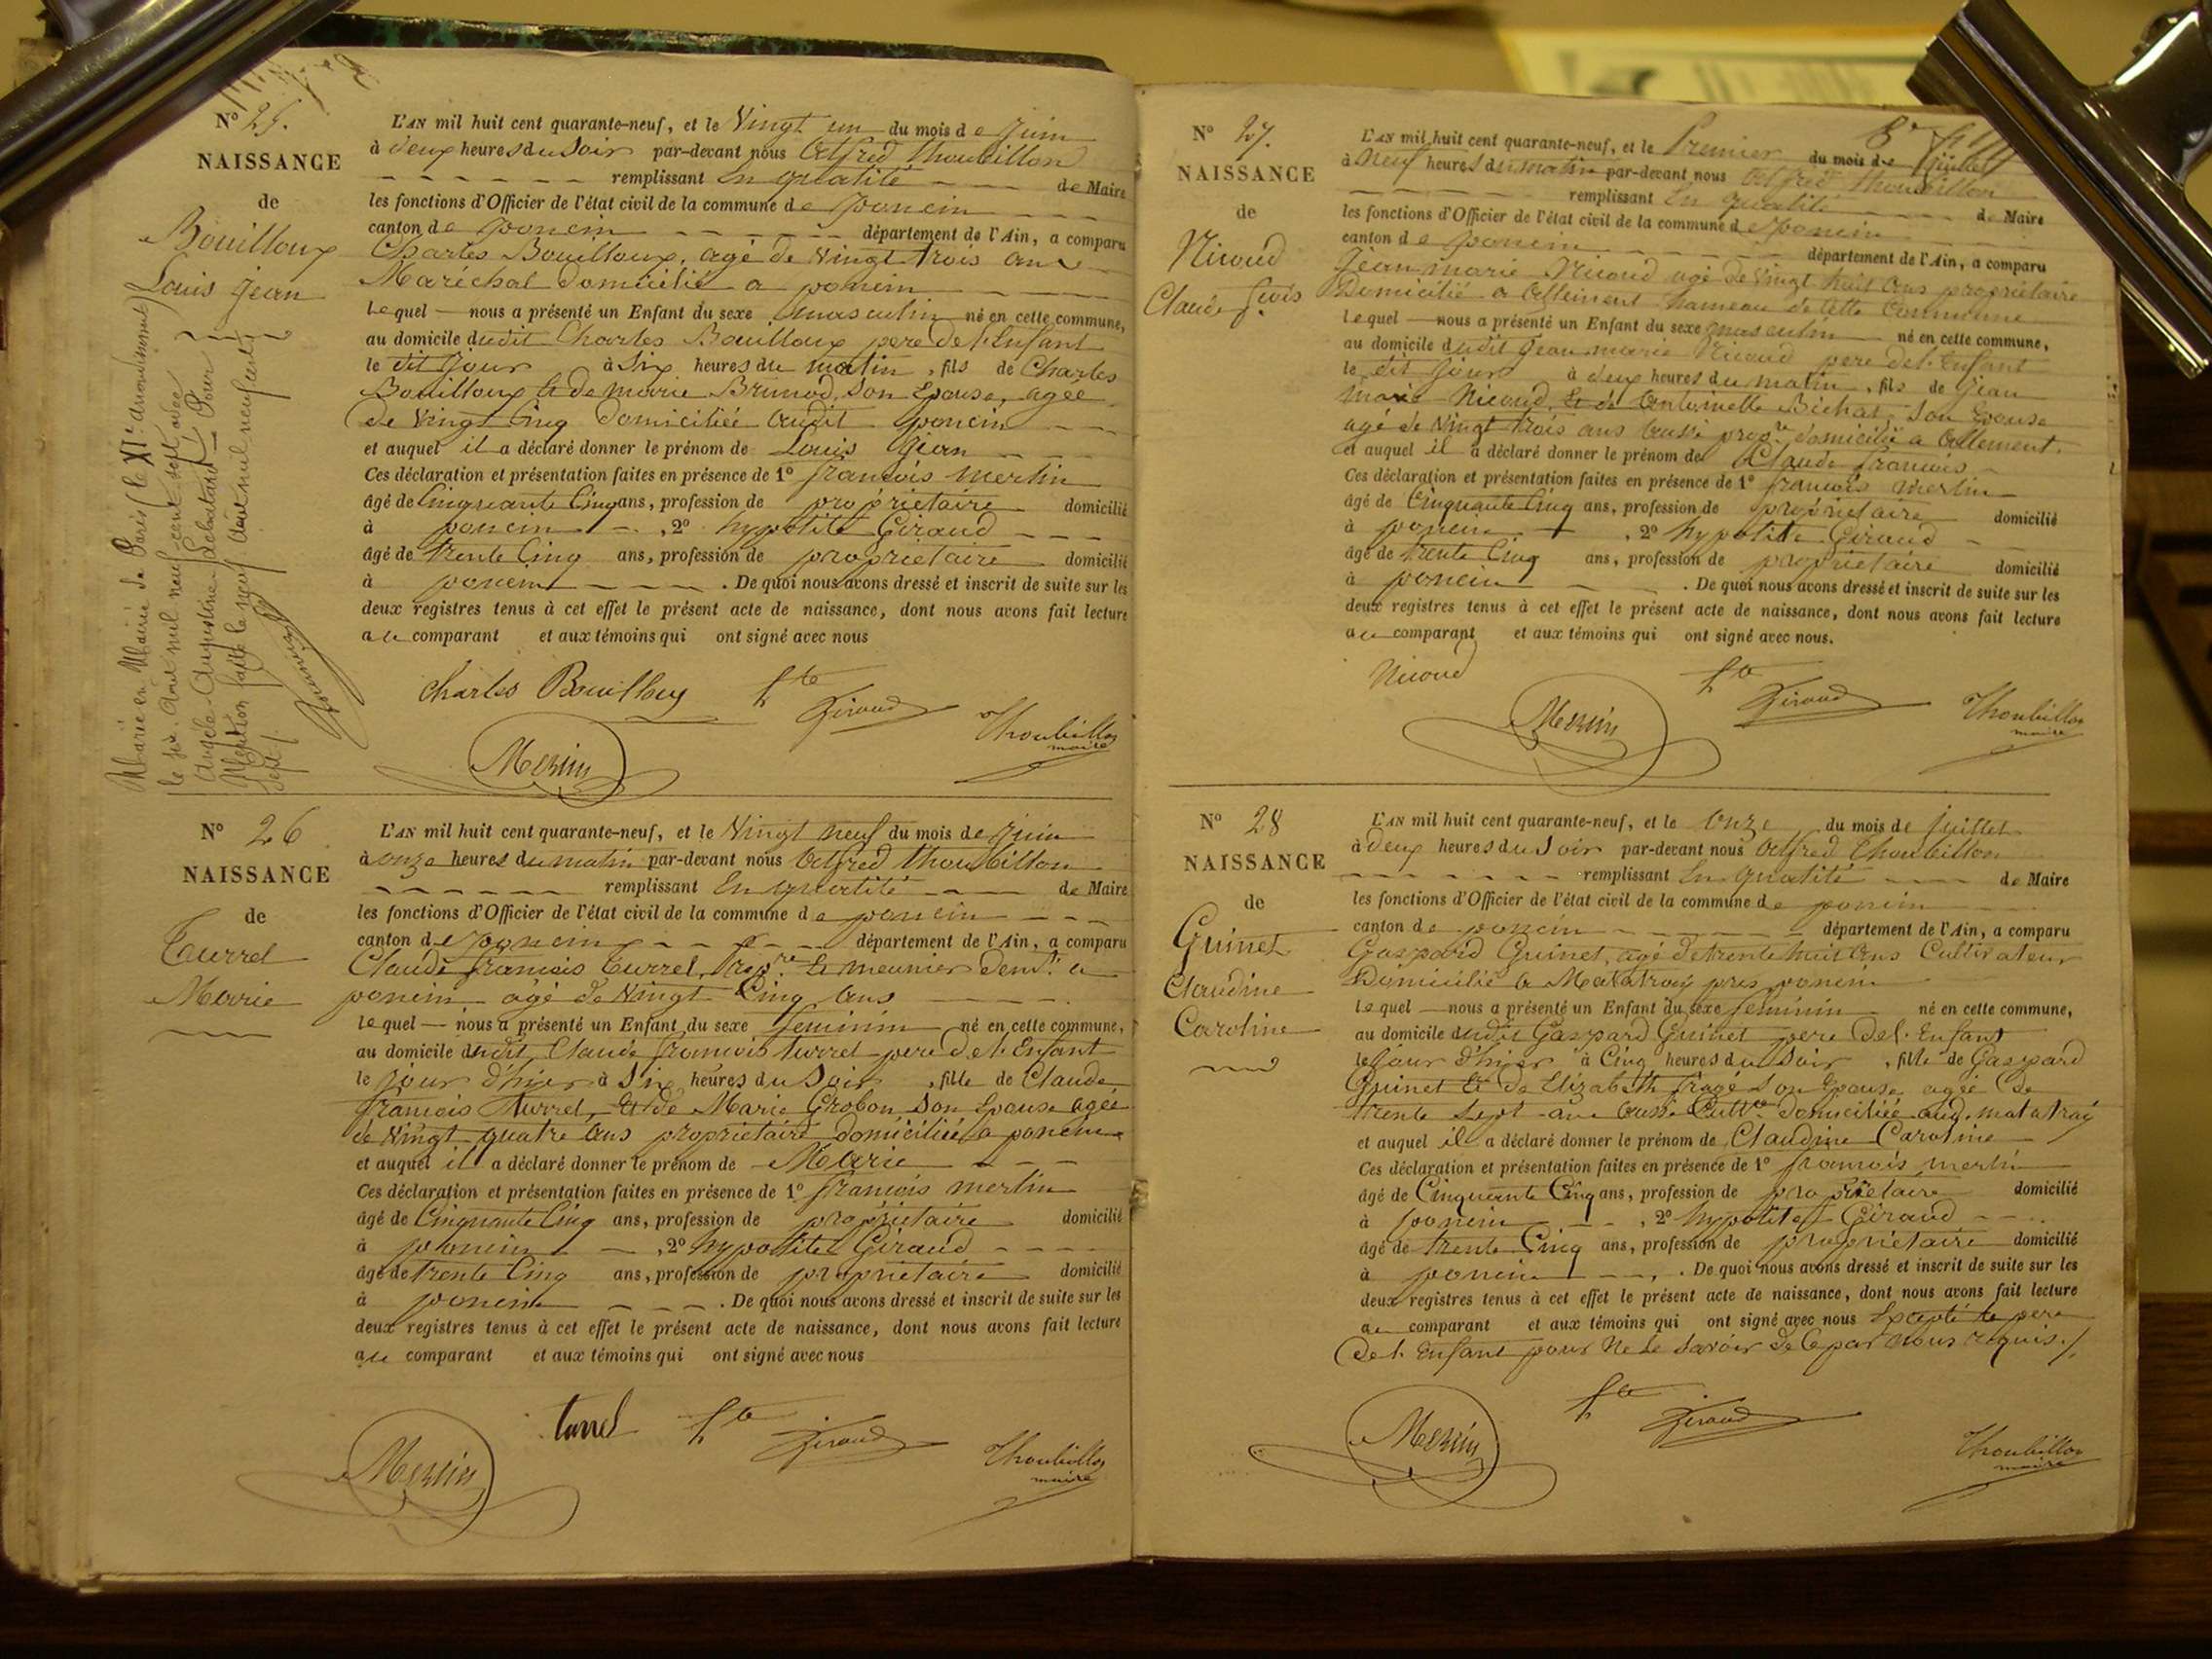 N° 25.
NAISSANCE
de
Bouilloux
Louis Jean
Marié en Mairie de Paris (le XIe arrondissement)
le six Août mil neuf cent sept avec
Angèle Augustine Debatard. Pour
Mention faite le neuf Août mil neuf cent
sept /.
L'AN mil huit cent quarante-neuf, et le Vingt un du mois de Juin
à deux heures du Soir par-devant nous Alfred Thoubillon
remplissant En qualité de Maire
les fonctions d'Officier de l'état civil de la commune de poncin
canton de poncin département de l'Ain, a comparu
Charles Bouilloux, agé de Vingt trois ans
Maréchal domicilié a poncin
Lequel nous a présenté un Enfant du sexe masculin né en cette commune,
au domicile dudit Charles Bouilloux pere de l'Enfant
le dit jour à Six heures du matin, fils de Charles
Bouilloux et de marie Brunod son Epouse, agée
de Vingt Cinq domiciliée audit poncin
et auquel il a déclaré donner le prénom de Louis Jean
Ces déclaration et présentation faites en présence de 1° francois merlin
âgé de Cinquante Cinq ans, profession de propriétaire domicilié
à poncin, 2° hypolite Giraud
âgé de trente Cinq ans, profession de propriétaire domicilié
à poncin. De quoi nous avons dressé et inscrit de suite sur les
deux registres tenus à cet effet le présent acte de naissance, dont nous avons fait lecture
au comparant et aux témoins qui ont signé avec nous
Charles Bouilloux hte Giraud Thoubillon
maire
Merlin
N° 26
NAISSANCE
de
Turrel
Marie
L'AN mil huit cent quarante-neuf, et le Vingt neuf du mois de Juin
à onze heures du matin par-devant nous Alfred Thoubillon
remplissant En qualité de Maire
les fonctions d'Officier de l'état civil de la commune de poncin
canton de poncin département de l'Ain, a comparu
Claude francois Turrel, propre et meunier demt a
poncin agé de Vingt Cinq ans
Lequel nous a présenté un Enfant du sexe feminin né en cette commune,
au domicile dudit Claude francois turrel pere de l'Enfant
le jour d'hier à Six heures du Soir, fille de Claude
francois Turrel, et de Marie Grobon son Epouse agée
de Vingt quatre ans propriétaire domiciliée a poncin
et auquel il a déclaré donner le prénom de Marie
Ces déclaration et présentation faites en présence de 1° francois merlin
âgé de Cinquante Cinq ans, profession de propriétaire domicilié
à poncin, 2° hypolite Giraud
âgé de trente Cinq ans, profession de propriétaire domicilié
à poncin. De quoi nous avons dressé et inscrit de suite sur les
deux registres tenus à cet effet le présent acte de naissance, dont nous avons fait lecture
au comparant et aux témoins qui ont signé avec nous
turrel hte Giraud Thoubillon
maire
Merlin
N° 27.
NAISSANCE
de
Nicoud
Claude fcois
L'AN mil huit cent quarante-neuf, et le Premier du mois de Juillet
à Neuf heures du matin par-devant nous Alfred Thoubillon
remplissant En qualité de Maire
les fonctions d'Officier de l'état civil de la commune de poncin
canton de poncin département de l'Ain, a comparu
Jean marie Nicoud agé de Vingt huit ans propriétaire
Domicilié a Allement hameau de Cette Commune
Lequel nous a présenté un Enfant du sexe masculin né en cette commune,
au domicile dudit Jean marie Nicoud pere de l'Enfant
le dit jour à deux heures du matin, fils de Jean
marie Nicoud, et de Antoinette Bichat son Epouse
agé de Vingt trois ans aussi propre domicilié a Allement.
et auquel il a déclaré donner le prénom de Claude francois
Ces déclaration et présentation faites en présence de 1° francois merlin
âgé de Cinquante Cinq ans, profession de propriétaire domicilié
à poncin, 2° hypolite Giraud
âgé de trente Cinq ans, profession de propriétaire domicilié
à poncin. De quoi nous avons dressé et inscrit de suite sur les
deux registres tenus à cet effet le présent acte de naissance, dont nous avons fait lecture
au comparant et aux témoins qui ont signé avec nous.
Nicoud hte Giraud Thoubillon
maire
Merlin
N° 28
NAISSANCE
de
Guinet
Claudine
Caroline
L'AN mil huit cent quarante-neuf, et le Onze du mois de Juillet
à deux heures du Soir par-devant nous Alfred Thoubillon
remplissant En qualité de Maire
les fonctions d'Officier de l'état civil de la commune de poncin
canton de poncin département de l'Ain, a comparu
Gaspard Guinet, agé de trente huit ans Cultivateur
Domicilié a Matafray pres poncin
Lequel nous a présenté un Enfant du sexe feminin né en cette commune,
au domicile dudit Gaspard Guinet pere de l'Enfant
le jour d'hier à Cinq heures du Soir, fille de Gaspard
Guinet et de Elizabeth son Epouse agée de
trente Sept ans aussi Cultre domiciliée aud. matafray
et auquel il a déclaré donner le prénom de Claudine Caroline
Ces déclaration et présentation faites en présence de 1° francois merlin
âgé de Cinquante Cinq ans, profession de propriétaire domicilié
à poncin, 2° hypolite Giraud
âgé de trente Cinq ans, profession de propriétaire domicilié
à poncin. De quoi nous avons dressé et inscrit de suite sur les
deux registres tenus à cet effet le présent acte de naissance, dont nous avons fait lecture
au comparant et aux témoins qui ont signé avec nous Excepté le pere
de l'Enfant pour Ne le savoir de Ce par nous requis./.
hte Giraud Thoubillon
maire
Merlin